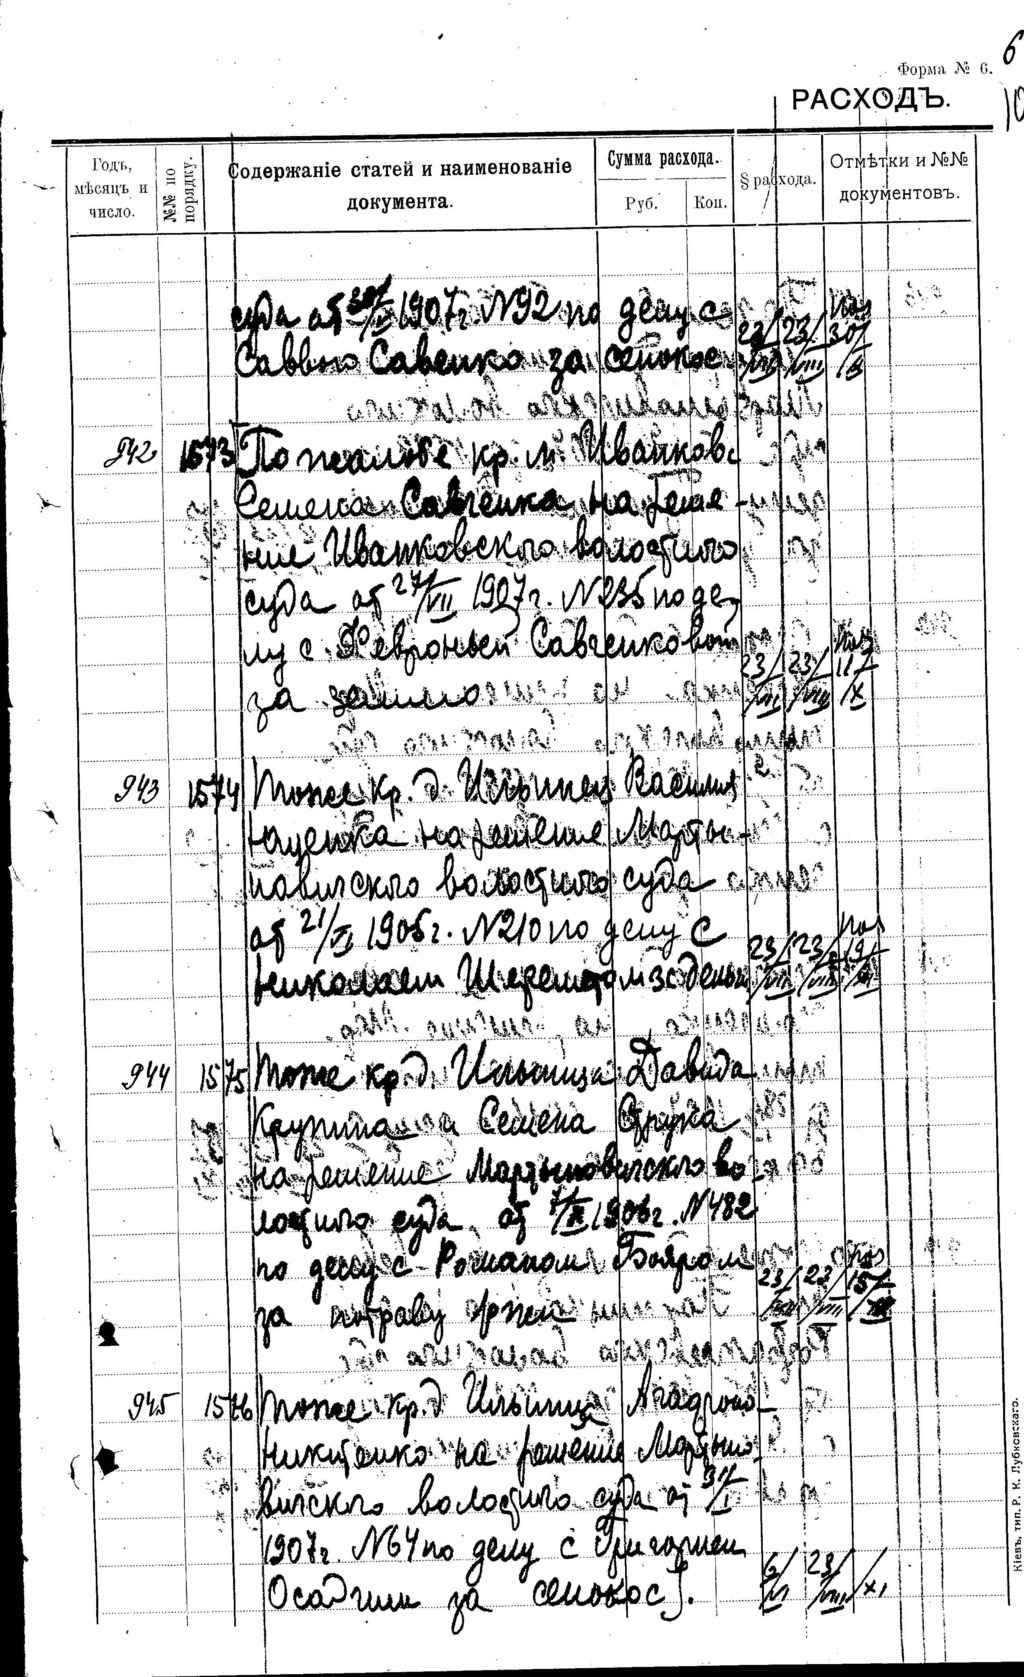 6
Форма № 6.
РАСХОДЪ.
10
Годъ, мѣсяцъ и число.
№№ по порядку.
Содержаніе статей и наименованіе документа.
Сумма расхода.
Руб.
Коп.
§ расхода.
Отмѣтки и №№ документовъ.
суда от 1907г. №92 по делу с
Саввою Савенко за сенокос
23/VII 23/VIII 30/X
942 1573 По жалобе кр. м. Иванков
Семена Савченка на реше-
ние Иванковского волостного
суда от 27/VII 1907г. №235 по де-
лу с Февроньей Савченковой
за землю
23/VII 23/VIII 11/X
943 1574 Тоже кр. д. Ильинец Василия
на решение Марты-
новичского волостного суда
от 21/ 1905г. №210 по делу с
Николаем за деньги
23/VII 23/VIII 19/
944 1575 Тоже кр. д. Ильинца Давида
Крупина и Семена
на решение Мартыновичского во-
лостного суда от 1906г. №482
по делу с Романом Бояром
за потраву ржи
23/VII 23/VIII 15/
945 1576 Тоже кр. д. Ильинца
Никитенко на решение Мартыно-
вичского волостного суда от 31/I
1907г. №64 по делу с Григорием
Осадчим за сенокос.
6/VI 23/VIII /XI
Кіевъ, тип. Р. К. Лубковскаго.